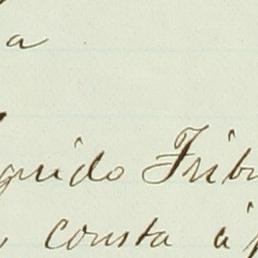 a
guido Tribu
consta á